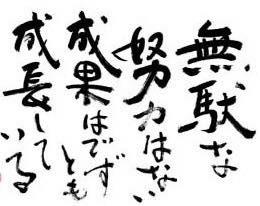 無駄な
努力はない
成果はでず
とも
成長して
いる